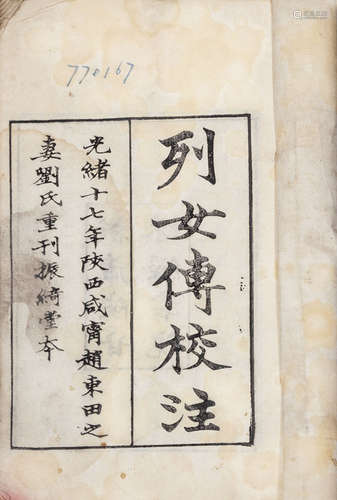 770167
列女傳校注
光緒十七年陝西咸甯趙東田之
妻劉氏重刊振綺堂本